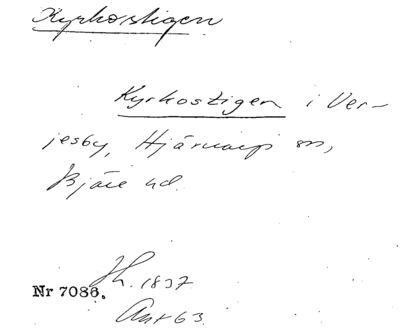 Kyrkostigen
Kyrkostigen i Ver-
jesby, Hjärnarp sn,
Bjäre hd.
Nr 7086.
1837
63